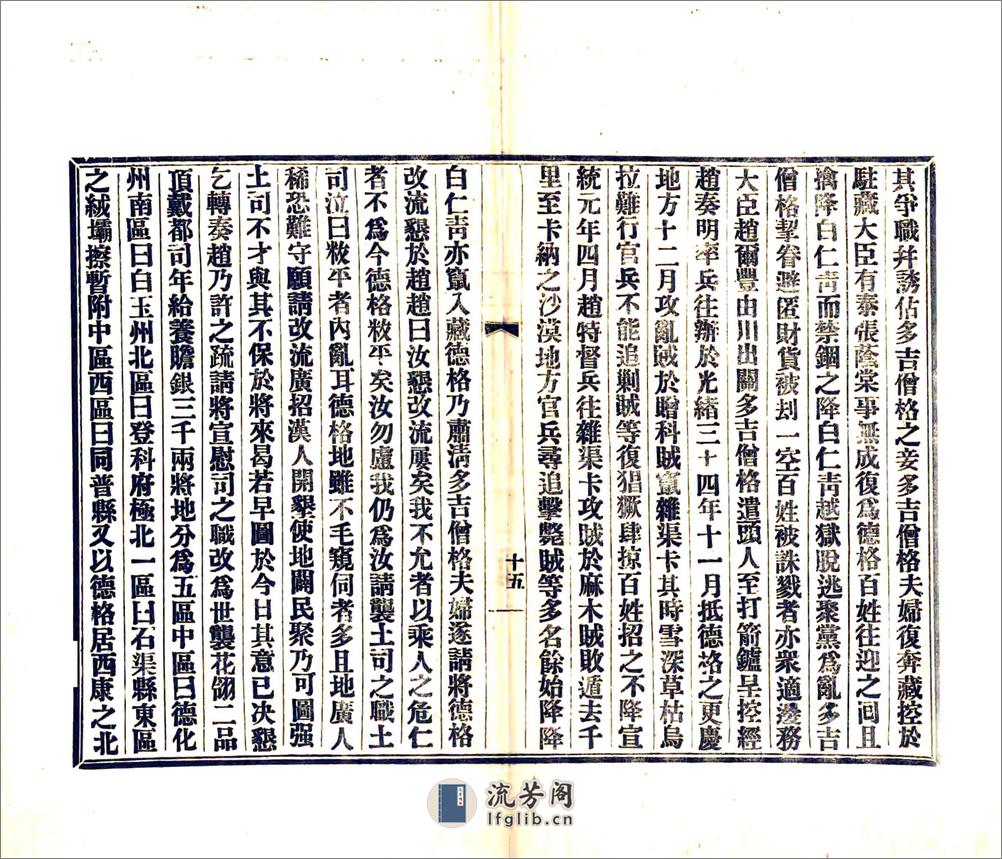 其爭職幷誘佔多吉僧格之妾多吉僧格夫婦復奔藏控於
駐藏大臣有泰張蔭棠事無成復爲德格百姓往迎之回且
擒降白仁靑而禁錮之降白仁靑越獄脫逃聚黨爲亂多吉
僧格挈眷避匿財貨被刦一空百姓被誅戮者亦衆適邊務
大臣趙爾豐由川出關多吉僧格遣頭人至打箭鑪呈控經
趙奏明率兵往辦於光緒三十四年十一月抵德格之更慶
地方十二月攻亂賊於贈科賊竄雜渠卡其時雪深草枯烏
拉難行官兵不能追剿賊等復猖獗肆掠百姓招之不降宣
統元年四月趙特督兵往雜渠卡攻賊於麻木賊敗遁去千
里至卡納之沙漠地方官兵尋追擊斃賊等多名餘始降降
十五
白仁靑亦竄入藏德格乃肅淸多吉僧格夫婦遂請將德格
改流懇於趙趙曰汝懇改流屢矣我不允者以乘人之危仁
者不爲今德格敉平矣汝勿慮我仍爲汝請襲土司之職土
司泣曰敉平者內亂耳德格地雖不毛窺伺者多且地廣人
稀恐難守願請改流廣招漢人開墾使地闢民聚乃可圖强
土司不才與其不保於將來曷若早圖於今日其意已决懇
乞轉奏趙乃許之疏請將宣慰司之職改爲世襲花翎二品
頂戴都司年給養贍銀三千兩將地分爲五區中區曰德化
州南區曰白玉州北區曰登科府極北一區曰石渠縣東區
之絨壩擦暫附中區西區曰同普縣又以德格居西康之北
流芳阁
lfglib.cn